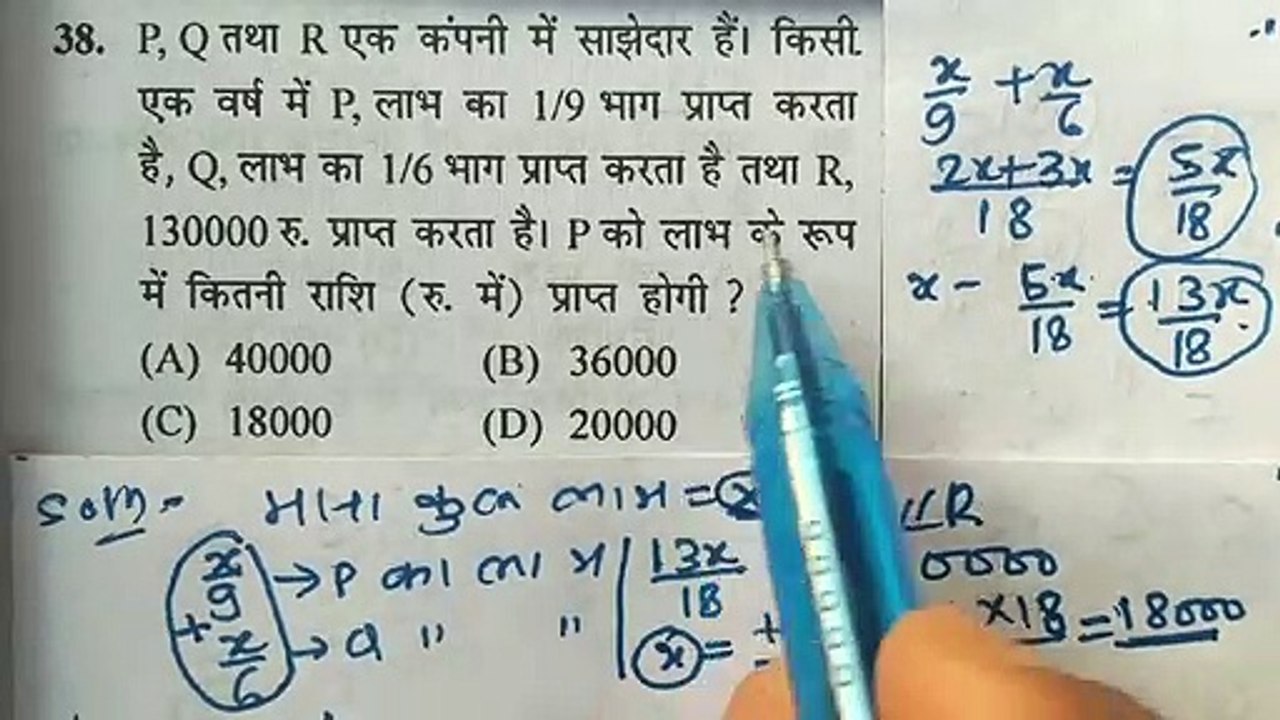 38. P, Q तथा R एक कंपनी में साझेदार हैं। किसी
एक वर्ष में P, लाभ का 1/9 भाग प्राप्त करता
है, Q, लाभ का 1/6 भाग प्राप्त करता है तथा R,
130000 रु. प्राप्त करता है। P को लाभ के रूप
में कितनी राशि (रु. में) प्राप्त होगी ?
(A) 40000 (B) 36000
(C) 18000 (D) 20000
x/9 + x/6
2x+3x/18 = 5x/18
x - 5x/18 = 13x/18
Soln- माना कुल लाभ = x
x/9 → P का लाभ
+ x/6 → Q " "
13x/18
x =
R
0000
×18 = 18000